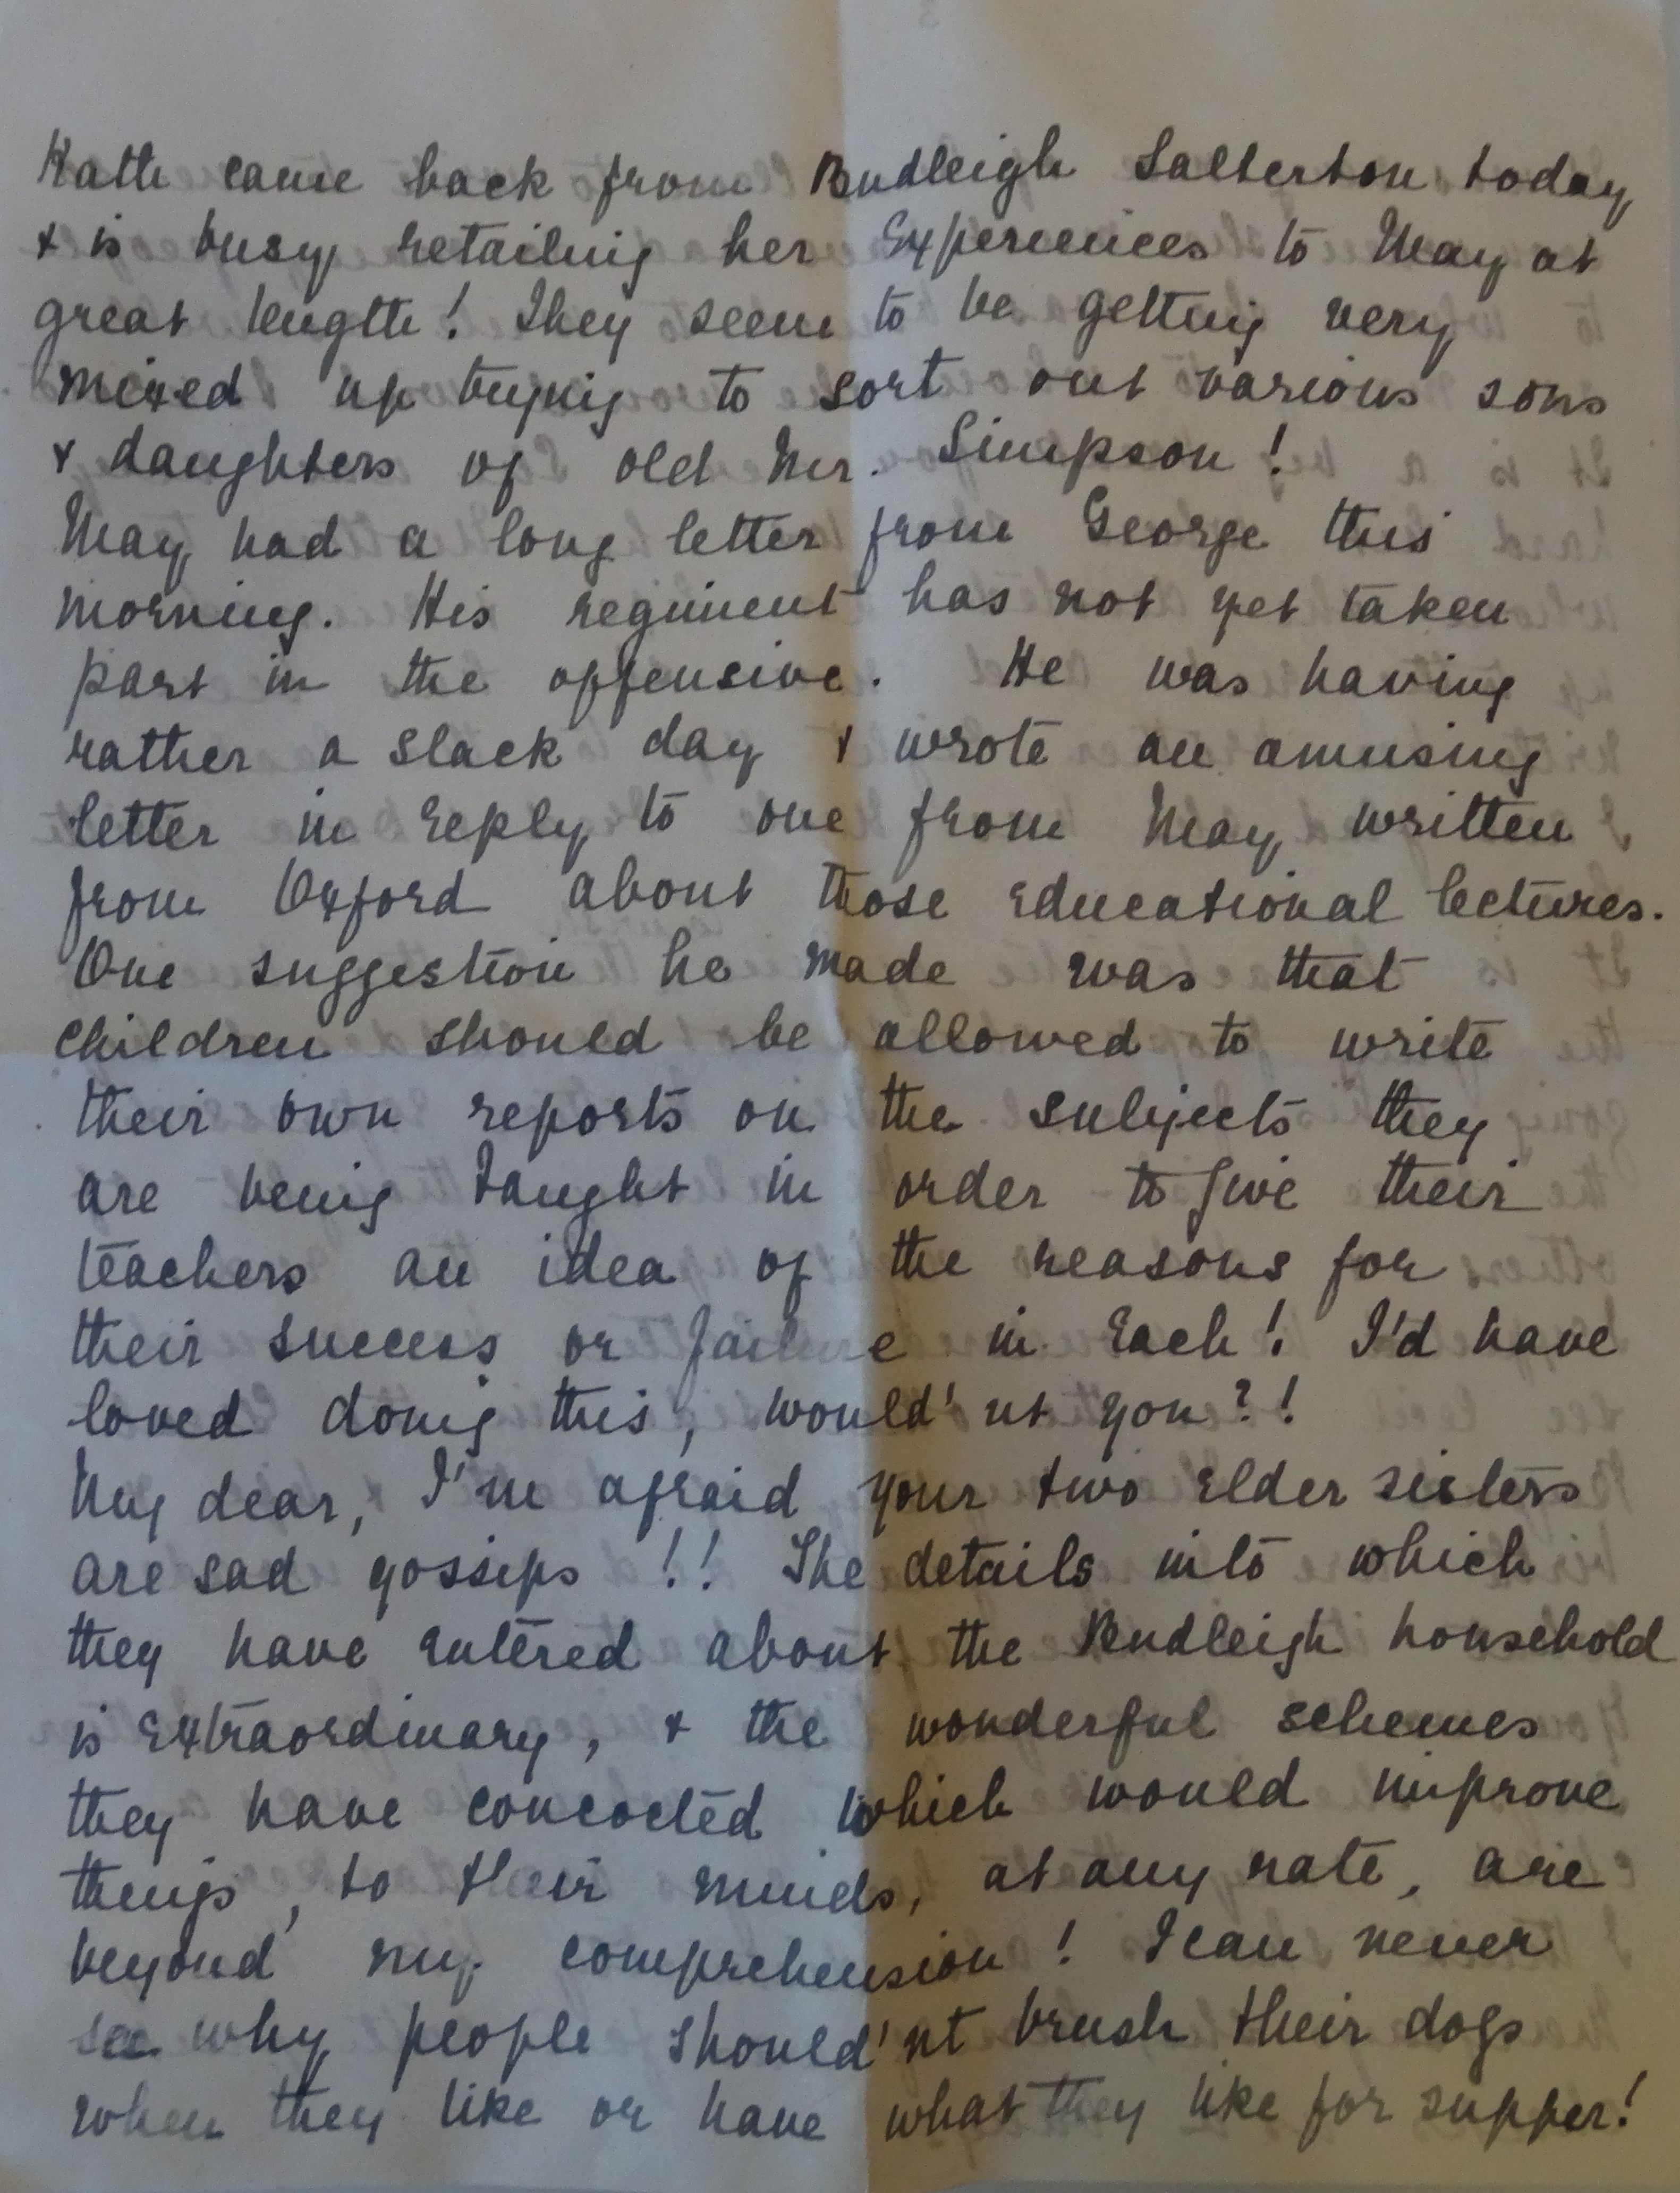 Kath came back from Budleigh Salterton today
& is busy retailing her experiences to May at
great length! They seem to be getting very
mixed up trying to sort out various sons
& daughters of old Mr. Simpson!
May had a long letter from George this
morning. His regiment has not yet taken
part in the offensive. He was having
rather a slack day & wrote an amusing
letter in reply to one from May, written
from Oxford about those educational lectures.
One suggestion he made was that
children should be allowed to write
their own reports on the subjects they
are being taught in order to give their
teachers an idea of the reasons for
their success or failure in each! I'd have
loved doing this, would'nt you?!
My dear, I'm afraid your two elder sisters
are sad gossips!! The details into which
they have entered about the Budleigh household
is extraordinary, & the wonderful schemes
they have concocted which would improve
things, to their minds, at any rate, are
beyond my comprehension! I can never
see why people should'nt brush their dogs
when they like or have what they like for supper!